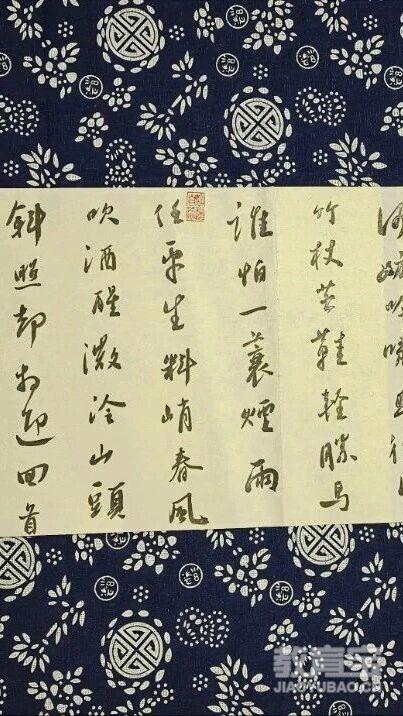 何妨吟嘯且徐行
竹杖芒鞋輕勝馬
誰怕一蓑煙雨
任平生料峭春風
吹酒醒微冷山頭
斜照却相迎回首
教育宝
JIAOYUBAO.CN